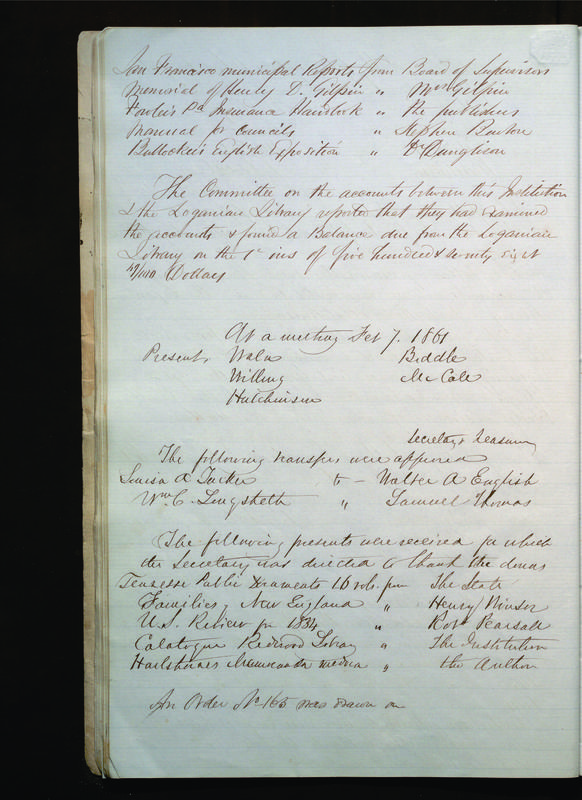 San Francisco municipal Reports from Board of Supervisors
Memorial of Henry D. Gilpin " Mrs Gilpin
Fowler's Pa Insurance Handbook " The publishers
Manual for Councils " Stephen Benton
Bullocker's English Expositor " Dr Dunglison
The Committee on the accounts between this Institution
& the Loganian Library reported that they had examined
the accounts & found a Balance due from the Loganian
Library on the 1st ins of five hundred & seventy eight
/100 Dollars
At a meeting Feb 7. 1861
Present, Waln Biddle
Willing McCall
Hutchinson
Secretary & Treasurer
The following transfers were approved
Louisa A Tucker to - Walter A English
Wm C. Longstreth " Samuel Thomas
The following presents were received for which
the Secretary was directed to thank the donors
Tennessee Public Documents 16 vols. from The State
Families, New England " Henry Winsor
U.S. Review for 1834 " Robt Pearsall
Catalogue Redwood Library " The Institution
" the Author
An Order No 165 was drawn on